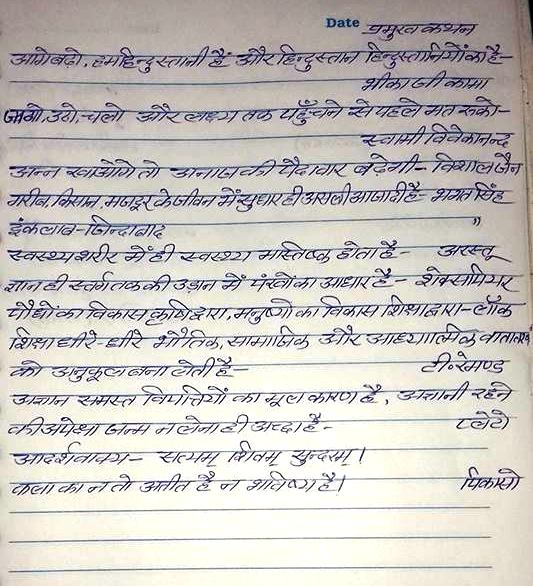 Date प्रमुख कथन
आगे बढो, हम हिन्दुस्तानी हैं और हिन्दुस्तान हिन्दुस्तानियों का है-
भीकाजी कामा
जागो, उठो, चलो और लक्ष्य तक पहुँचने से पहले मत रूको-
स्वामी विवेकानन्द
अन्न खाओगे तो अनाज की पैदावार बढेगी - विशाल जैन
गरीब किसान, मजदूर के जीवन में सुधार ही असली आजादी है- भगत सिंह
इंकलाब - जिन्दाबाद "
स्वस्थ शरीर में ही स्वस्थ मस्तिष्क होता है- अरस्तू
ज्ञान ही स्वर्ग तक की उडान में पंखों का आधार है- शेक्सपियर
पौधों का विकास कृषि द्वारा, मनुष्यो का विकास शिक्षा द्वारा - लॉक
शिक्षा धीरे-धीरे भौतिक, सामाजिक और आध्यात्मिक वातावरण
को अनुकूल बना लेती है- टी. रेमण्ड
अज्ञान समस्त विपत्तियों का मूल कारण है, अज्ञानी रहने
की अपेक्षा जन्म न लेना ही अच्छा है- प्लेटो
आदर्श वाक्य- सत्यम् शिवम् सुन्दरम्।
कला का न तो अतीत है न भविष्य है। पिकासो